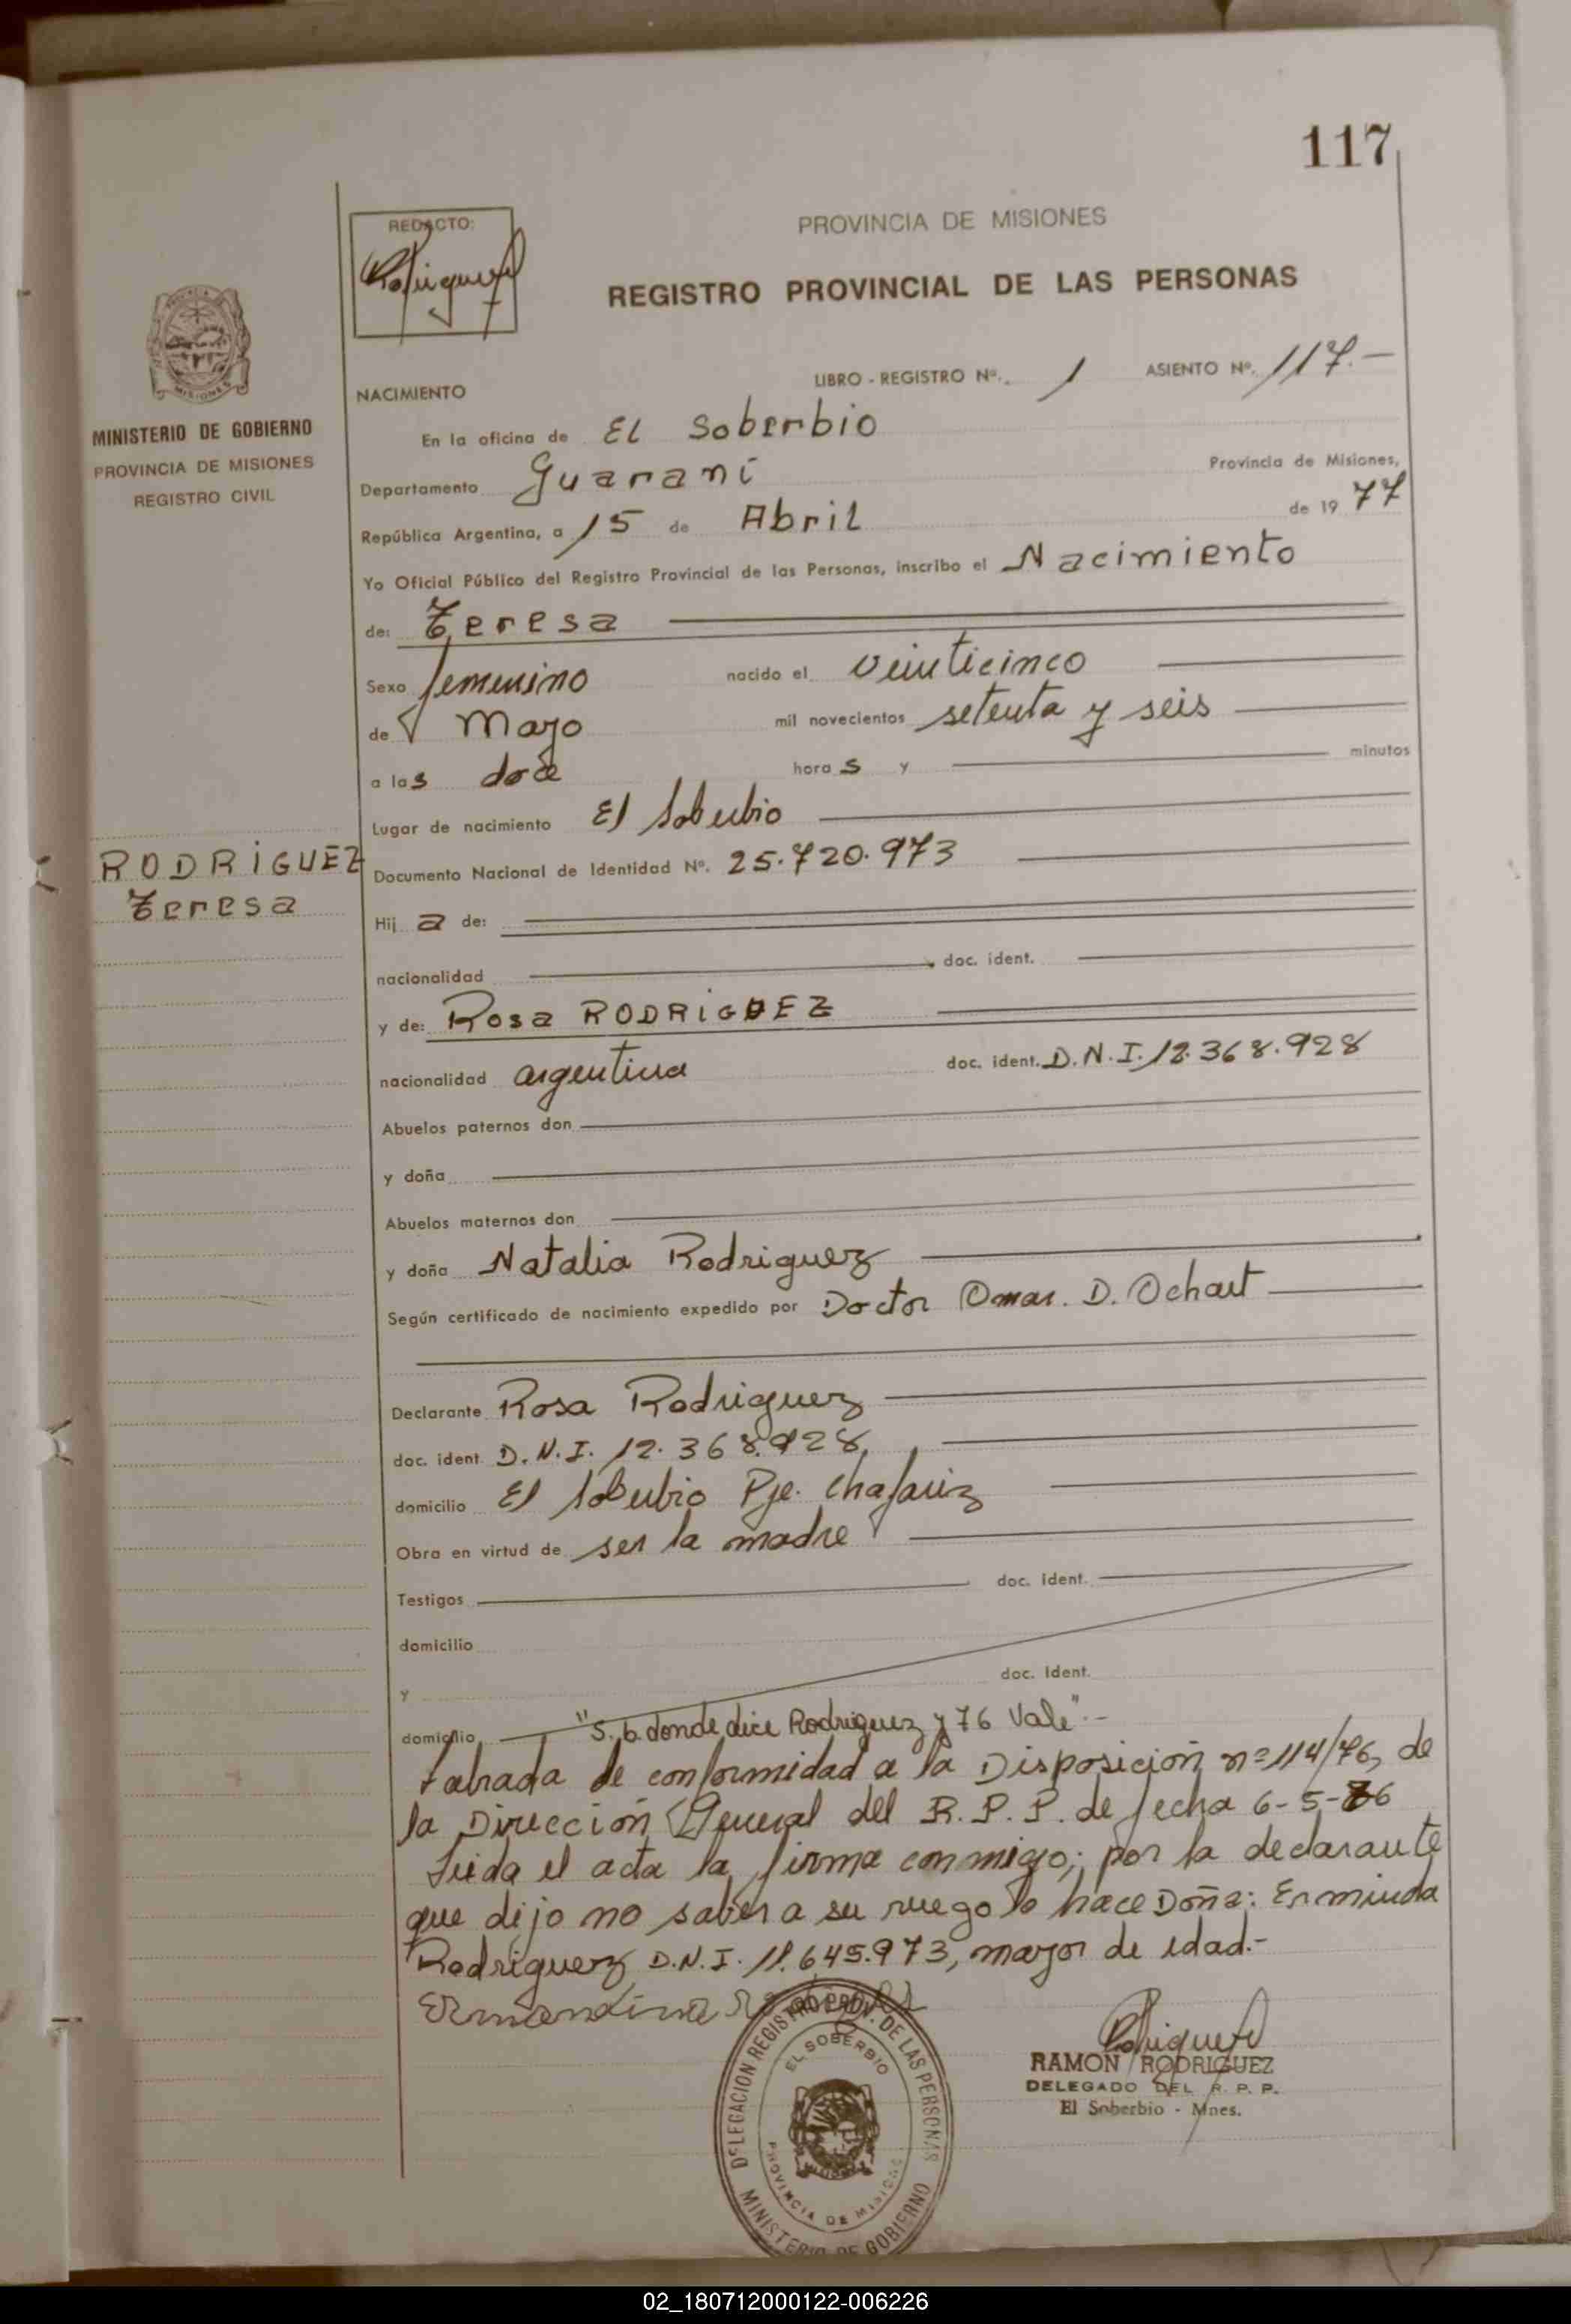 117
REDACTO:
PROVINCIA DE MISIONES
REGISTRO PROVINCIAL DE LAS PERSONAS
NACIMIENTO
LIBRO - REGISTRO Nº. 1 ASIENTO Nº. 117.-
MINISTERIO DE GOBIERNO
PROVINCIA DE MISIONES
REGISTRO CIVIL
En la oficina de El Soberbio
Departamento Guaraní Provincia de Misiones,
República Argentina, a 15 de Abril de 19 77
Yo Oficial Público del Registro Provincial de las Personas, inscribo el Nacimiento
de: Teresa
Sexo femenino nacido el veinticinco
de Mayo mil novecientos setenta y seis
a las doce horas y minutos
Lugar de nacimiento El Soberbio
RODRIGUEZ
Teresa
Documento Nacional de Identidad Nº. 25.720.973
Hija de:
nacionalidad doc. ident.
y de: Rosa RODRIGUEZ
nacionalidad argentina doc. ident. D.N.I. 12.368.928
Abuelos paternos don
y doña
Abuelos maternos don
y doña Natalia Rodriguez
Según certificado de nacimiento expedido por Doctor Omar. D. Ochart
Declarante Rosa Rodriguez
doc. ident. D.N.I. 12.368.928
domicilio El Soberbio Pje. Chafariz
Obra en virtud de ser la madre
Testigos doc. ident.
domicilio
y doc. ident.
domicilio "S. b. donde dice Rodriguez y 76 Vale".-
Labrada de conformidad a la Disposición nº 114/76, de
la Dirección General del R.P.P. de fecha 6-5-76
Leida el acta la firma conmigo; por la declarante
que dijo no saber a su ruego lo hace Doña: Erminda
Rodriguez D.N.I. 11.645.973, mayor de edad.-
DELEGACION REGISTRO PROV. DE LAS PERSONAS
EL SOBERBIO
PROVINCIA DE MISIONES
MINISTERIO DE GOBIERNO
RAMON RODRIGUEZ
DELEGADO DEL R. P. P.
El Soberbio - Mnes.
02_180712000122-006226